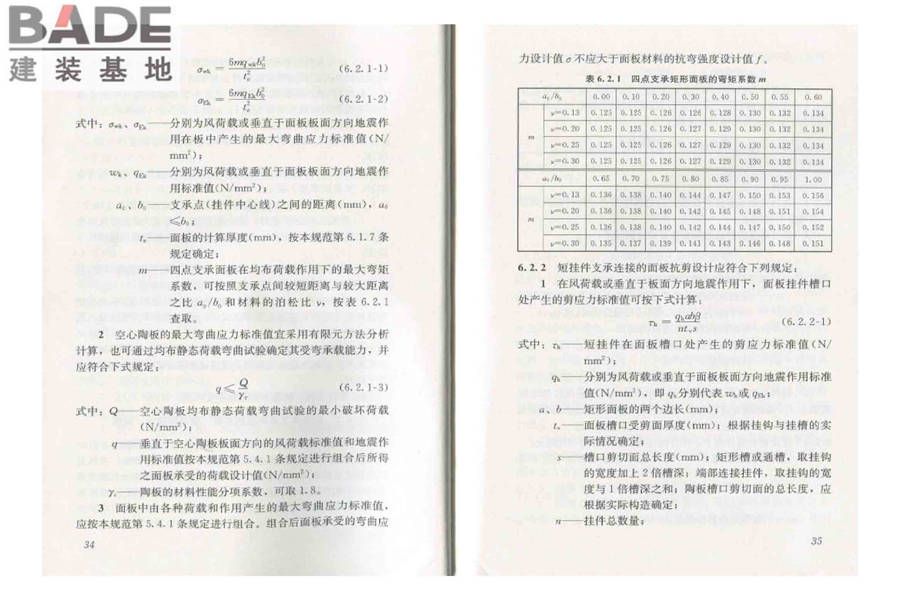 BADE
建装基地
σwk = 6mqwkb₀² / te² (6.2.1-1)
σEk = 6mqEkb₀² / te² (6.2.1-2)
式中：σwk、σEk——分别为风荷载或垂直于面板板面方向地震作
用在板中产生的最大弯曲应力标准值(N/
mm²)；
wk、qEk——分别为风荷载或垂直于面板板面方向地震作
用标准值(N/mm²)；
a₀、b₀——支承点(挂件中心线)之间的距离(mm)，a₀
≤b₀；
te——面板的计算厚度(mm)，按本规范第6.1.7条
规定确定；
m——四点支承面板在均布荷载作用下的最大弯矩
系数，可按照支承点间较短距离与较大距离
之比a₀/b₀和材料的泊松比ν，按表6.2.1
查取。
2 空心陶板的最大弯曲应力标准值宜采用有限元方法分析
计算，也可通过均布静态荷载弯曲试验确定其受弯承载能力，并
应符合下式规定：
q ≤ Q / γr (6.2.1-3)
式中：Q——空心陶板均布静态荷载弯曲试验的最小破坏荷载
(N/mm²)；
q——垂直于空心陶板板面方向的风荷载标准值和地震作
用标准值按本规范第5.4.1条规定进行组合后所得
之面板承受的荷载设计值(N/mm²)；
γr——陶板的材料性能分项系数，可取1.8。
3 面板中由各种荷载和作用产生的最大弯曲应力标准值，
应按本规范第5.4.1条规定进行组合。组合后面板承受的弯曲应
34
力设计值σ不应大于面板材料的抗弯强度设计值f。
表6.2.1 四点支承矩形面板的弯矩系数m
a₀/b₀ 0.00 0.10 0.20 0.30 0.40 0.50 0.55 0.60
m
ν=0.13 0.125 0.125 0.126 0.126 0.128 0.130 0.132 0.134
ν=0.20 0.125 0.125 0.126 0.127 0.129 0.130 0.132 0.134
ν=0.25 0.125 0.125 0.126 0.127 0.129 0.130 0.132 0.134
ν=0.30 0.125 0.125 0.126 0.127 0.129 0.130 0.132 0.134
a₀/b₀ 0.65 0.70 0.75 0.80 0.85 0.90 0.95 1.00
m
ν=0.13 0.136 0.138 0.140 0.144 0.147 0.150 0.153 0.156
ν=0.20 0.136 0.138 0.140 0.142 0.145 0.148 0.151 0.154
ν=0.25 0.136 0.138 0.140 0.142 0.144 0.147 0.150 0.152
ν=0.30 0.135 0.137 0.139 0.141 0.143 0.146 0.148 0.151
6.2.2 短挂件支承连接的面板抗剪设计应符合下列规定：
1 在风荷载或垂直于板面方向地震作用下，面板挂件槽口
处产生的剪应力标准值可按下式计算：
τk = qkabβ / ntcs (6.2.2-1)
式中：τk——短挂件在面板槽口处产生的剪应力标准值(N/
mm²)；
qk——分别为风荷载或垂直于面板板面方向地震作用标准
值(N/mm²)，即qk分别代表wk或qEk；
a、b——矩形面板的两个边长(mm)；
tc——面板槽口受剪面厚度(mm)；根据挂钩与挂槽的实
际情况确定；
s——槽口剪切面总长度(mm)；矩形槽或通槽，取挂钩
的宽度加上2倍槽深；端部连接挂件，取挂钩的宽
度与1倍槽深之和；陶板槽口剪切面的总长度，应
根据实际构造确定；
n——挂件总数量；
35